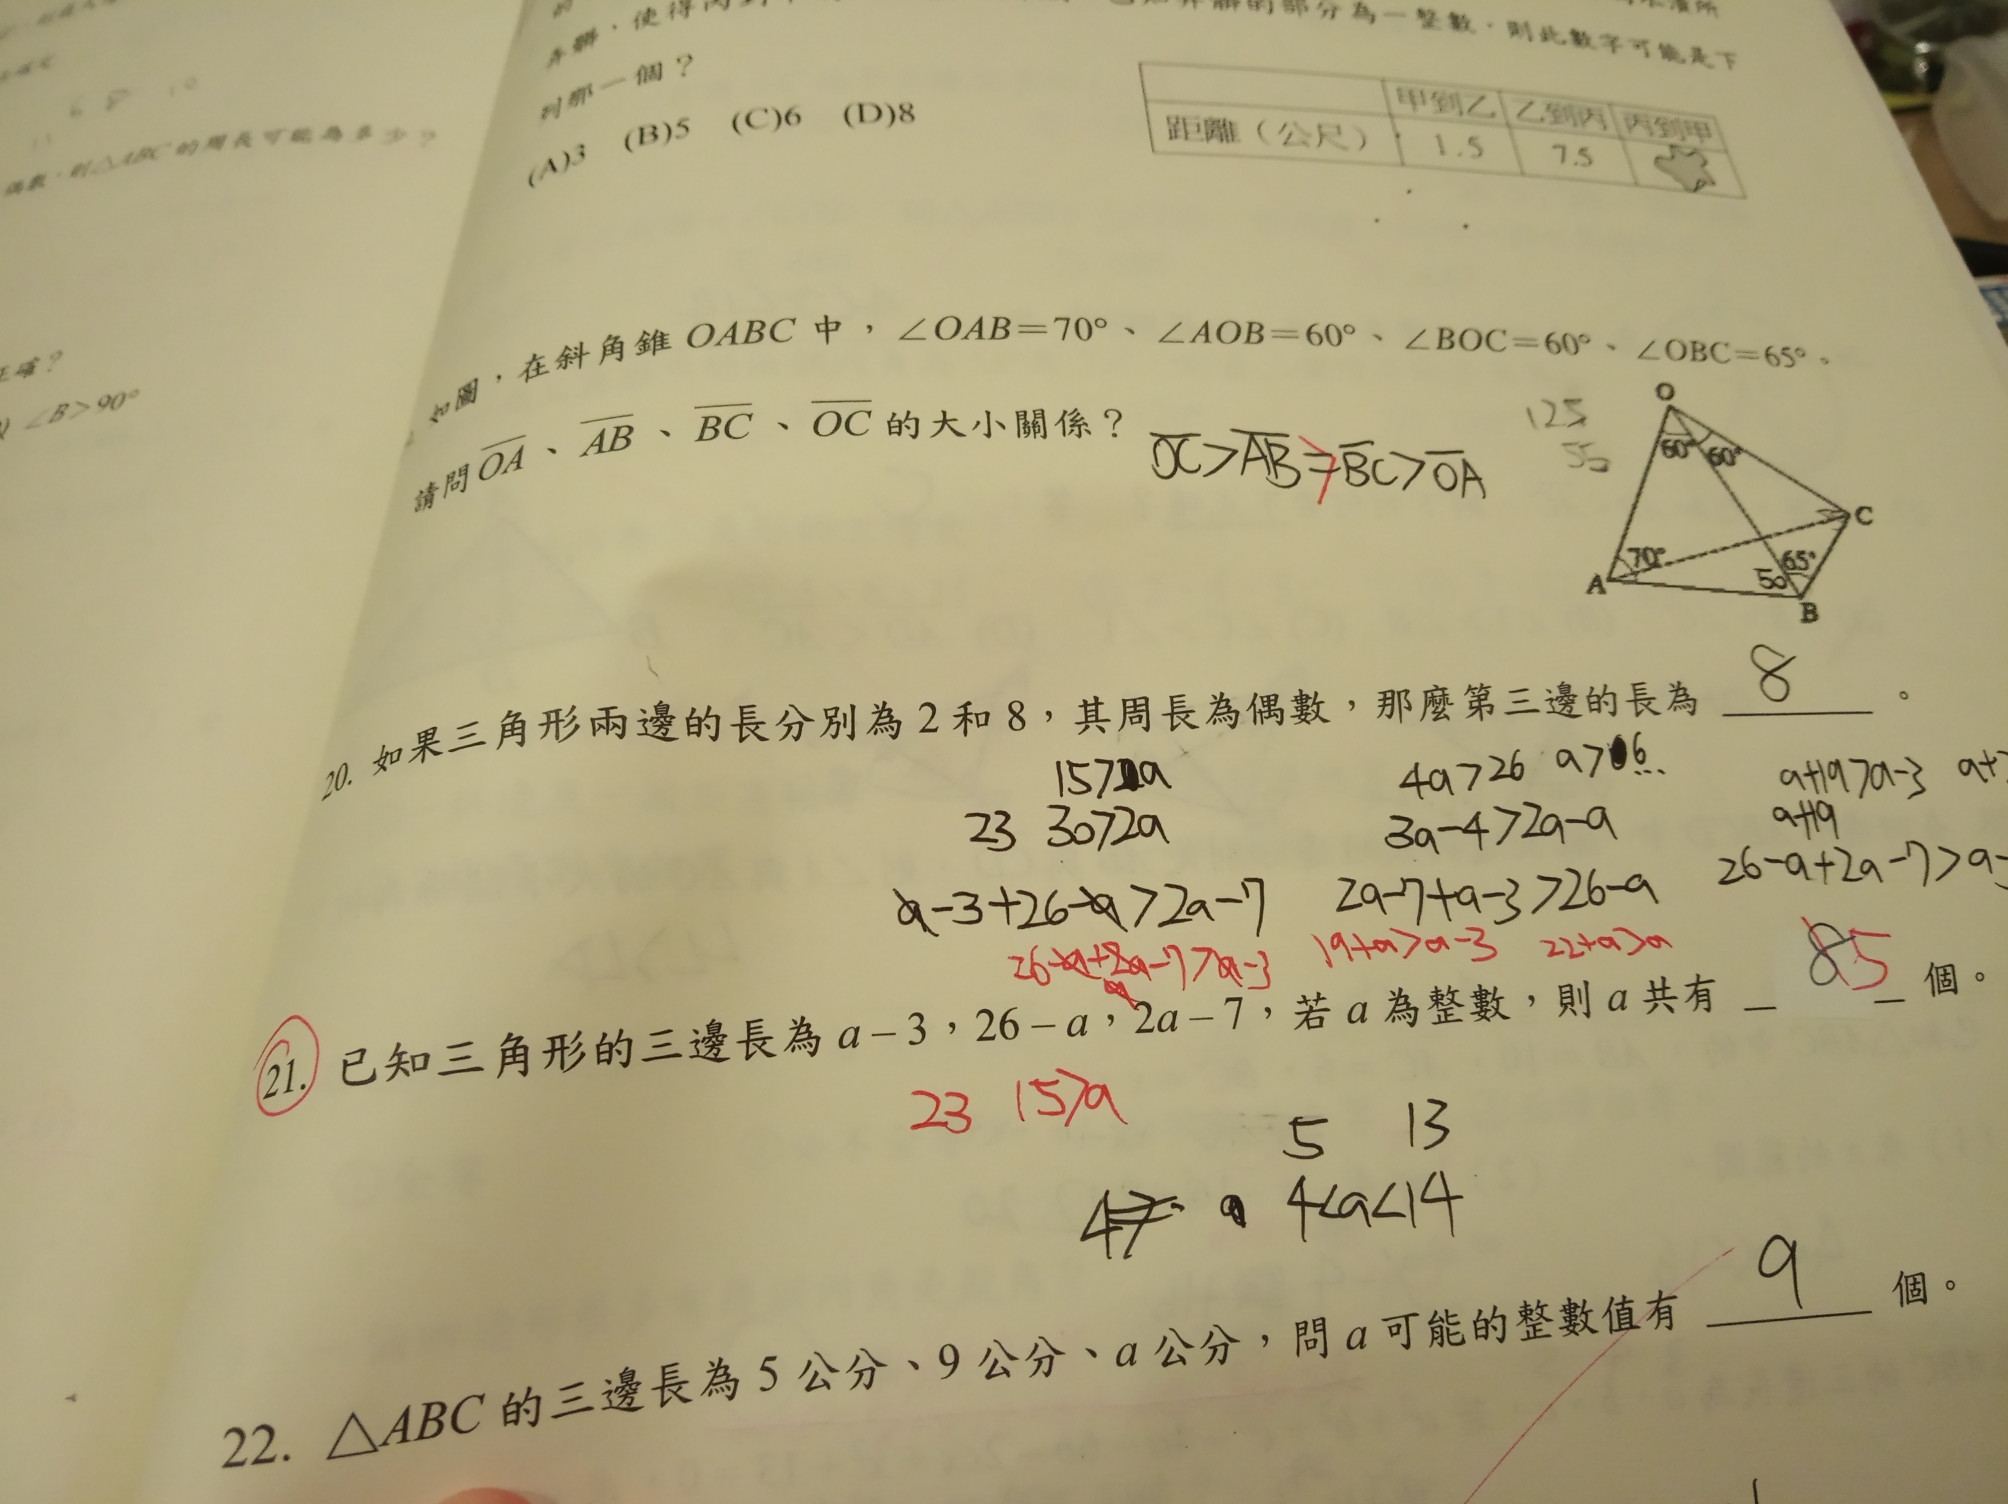 偶數，則△ABC的周長可能為多少？
∠B＞90°
弄髒，使得
的部分為一整數，則此數字可能是下
列哪一個？
(A)3 (B)5 (C)6 (D)8
甲到乙 乙到丙 丙到甲
距離（公尺） 1.5 7.5
如圖，在斜角錐 OABC 中，∠OAB＝70°、∠AOB＝60°、∠BOC＝60°、∠OBC＝65°。
請問 OA、AB、BC、OC 的大小關係？
OC>AB=BC>OA
125
55
O
60° 60°
C
70° 65°
A 50
B
20. 如果三角形兩邊的長分別為 2 和 8，其周長為偶數，那麼第三邊的長為 8 。
15>a 4a>26 a>6.. a+19>a-3
23 30>2a 3a-4>2a-a a+19
a-3+26-a>2a-7 2a-7+a-3>26-a 26-a+2a-7>a-
26-a+2a-7>a-3 19+a>a-3 22+a>a
21. 已知三角形的三邊長為 a－3，26－a，2a－7，若 a 為整數，則 a 共有 8 5 個。
23 15>a
5 13
4<a<14
22. △ABC 的三邊長為 5 公分、9 公分、a 公分，問 a 可能的整數值有 9 個。